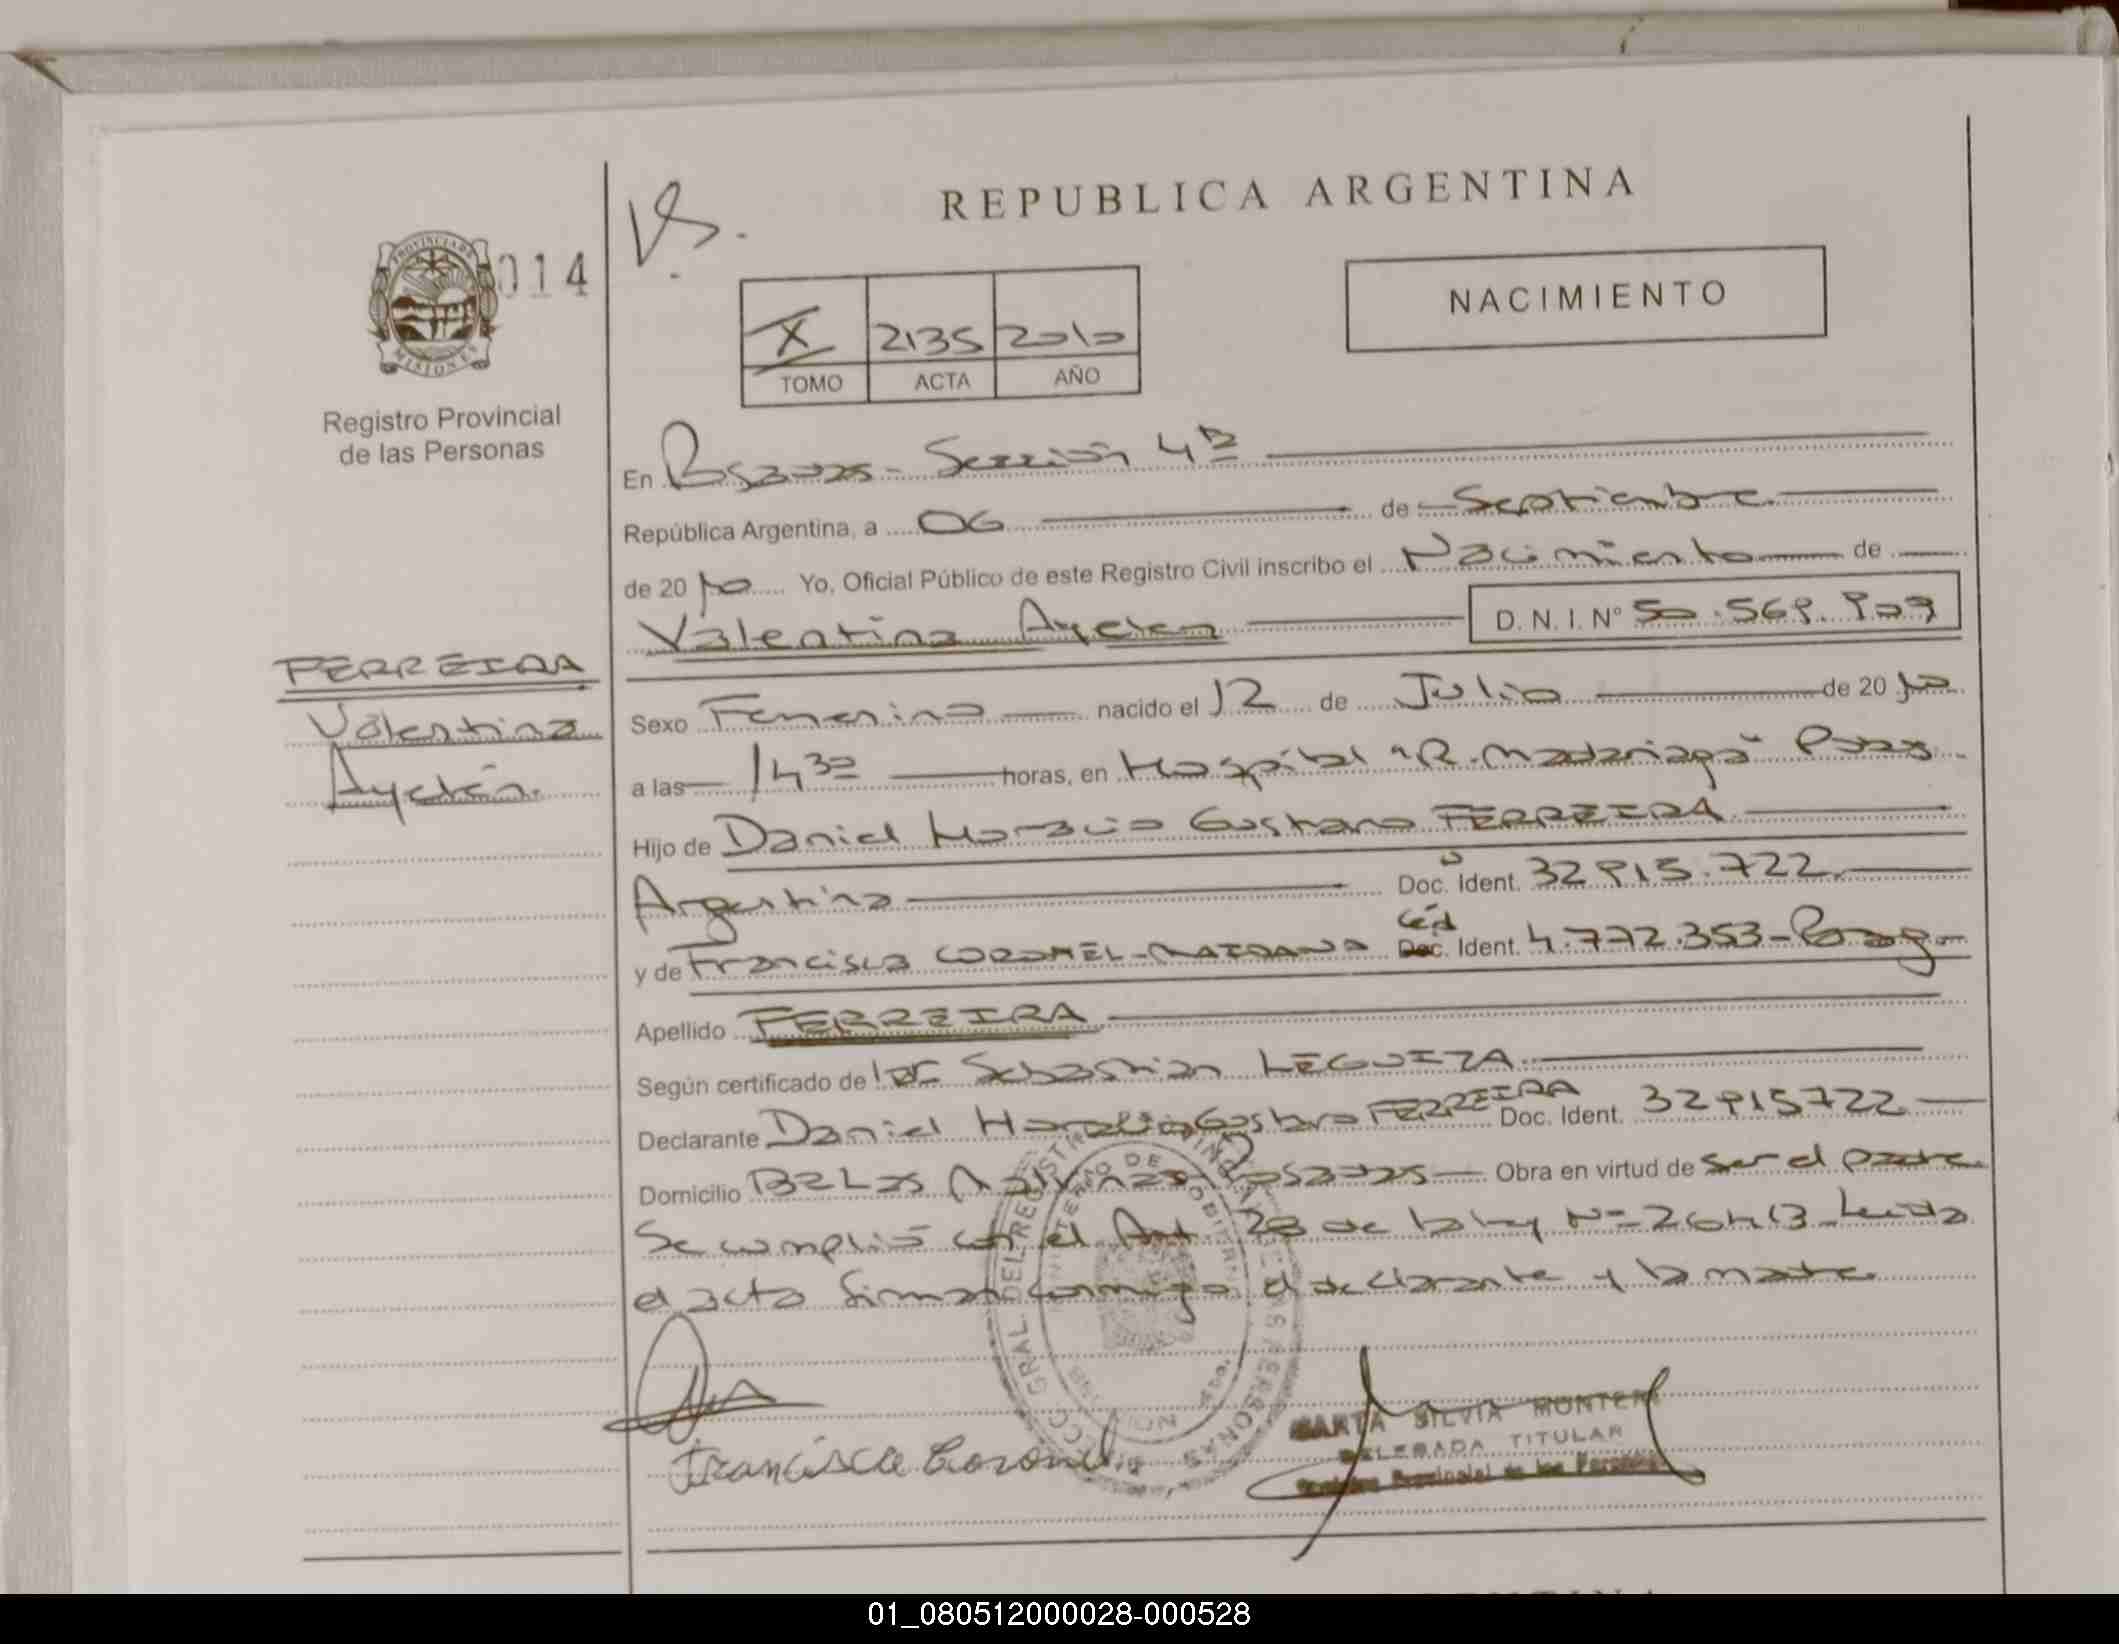 REPUBLICA ARGENTINA
PROVINCIA DE
MISIONES
014
Vs.
NACIMIENTO
X 2135 2010
TOMO ACTA AÑO
Registro Provincial
de las Personas
En Posadas - Sección 4ta
República Argentina, a 06 de Septiembre
de 2010 Yo, Oficial Público de este Registro Civil inscribo el Nacimiento de
Valentina Ayelen D. N. I. Nº 50.569.909
FERREIRA
Valentina
Ayelén.
Sexo Femenino nacido el 12 de Julio de 2010
a las 14 30 horas, en Hospital "R. Madariaga" Pdas
Hijo de Daniel Horacio Gustavo FERREIRA
Argentina Doc. Ident. 32915.722
y de Francisca CORONEL-MAIDANA Céd Doc. Ident. 4.772.353-Parag.
Apellido FERREIRA
Según certificado de Dr Sebastian LEGUIZA
Declarante Daniel Horacio Gustavo FERREIRA Doc. Ident. 32915722
Domicilio Bº Las Malvinas Posadas Obra en virtud de ser el padre
Se cumplió con el Art. 28 de la ley Nº 26413 Leida
el acta firman conmigo el declarante y la madre
Francisca Coronel
SILVIA MONTERO
DELEGADA TITULAR
Registro Provincial de las Personas
01_080512000028-000528